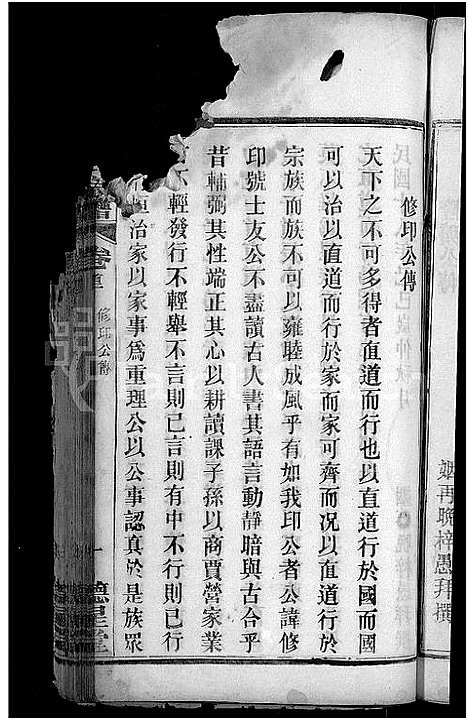 姻再晚梓愚拜撰
修印公傳
天下之不可多得者直道而行也以直道行於國而國
可以治以直道而行於家而家可齊而况以直道行於
宗族而族不可以雍睦成風乎有如我印公者公諱修
印號士友公不盡讀古人書其語言動靜暗與古合乎
昔輔弼其性端正其心以耕讀課子孫以商賈營家業
不輕發行不輕舉不言則已言則有中不行則已行
恒治家以家事爲重理公以公事認真於是族眾
譜 卷首 修印公傳 一 德星堂